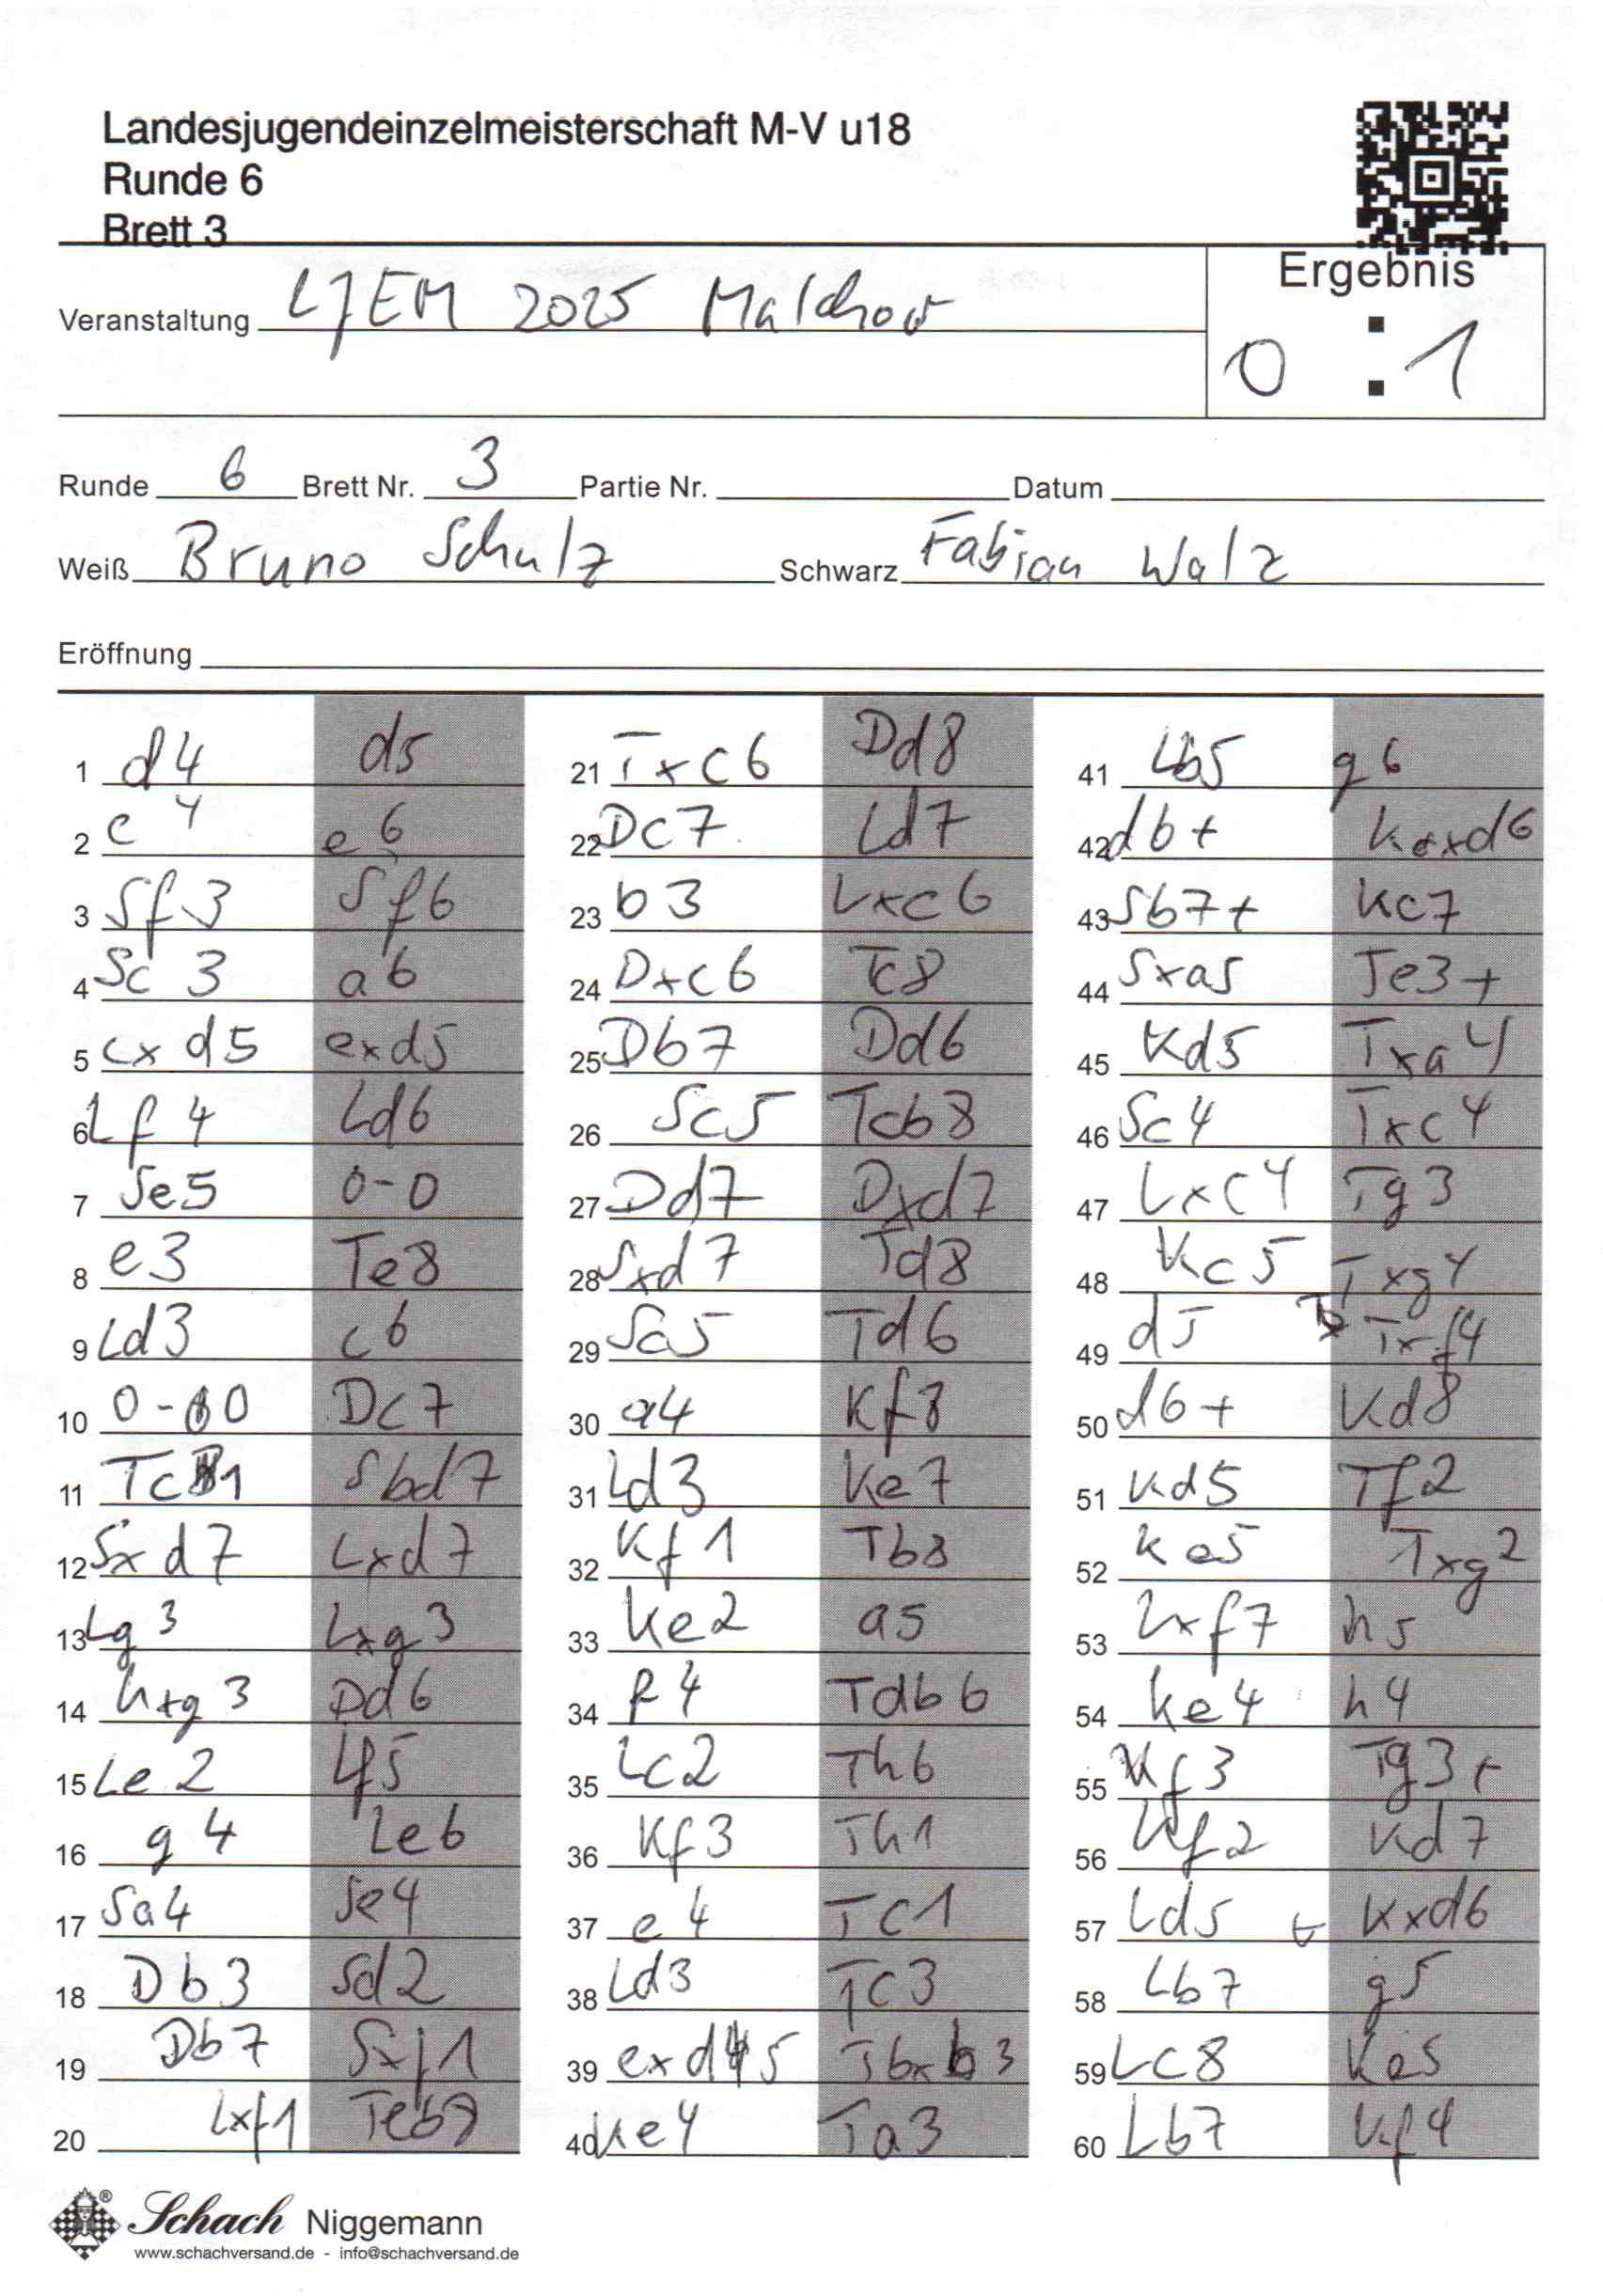 Landesjugendeinzelmeisterschaft M-V u18
Runde 6
Brett 3
Ergebnis
Veranstaltung LJEM 2025 Malchow
0 : 1
Runde 6 Brett Nr. 3 Partie Nr. Datum
Weiß Bruno Schulz Schwarz Fabian Walz
Eröffnung
1 d4 d5
2 c4 e6
3 Sf3 Sf6
4 Sc3 a6
5 cxd5 exd5
6 Lf4 Ld6
7 Se5 0-0
8 e3 Te8
9 Ld3 c6
10 0-0 Dc7
11 Tc1 Sbd7
12 Sxd7 Lxd7
13 Lg3 Lxg3
14 hxg3 Dd6
15 Le2 Lf5
16 g4 Le6
17 Sa4 Se4
18 Db3 Sd2
19 Db7 Sxf1
20 Lxf1 Teb8
21 Txc6 Dd8
22 Dc7 Ld7
23 b3 Lxc6
24 Dxc6 Tc8
25 Db7 Dd6
26 Sc5 Tcb8
27 Dd7 Dxd7
28 Sxd7 Td8
29 Sc5 Td6
30 a4 Kf8
31 Ld3 Ke7
32 Kf1 Tb8
33 Ke2 a5
34 f4 Tdb6
35 Lc2 Th6
36 Kf3 Th1
37 e4 Tc1
38 Ld3 Tc3
39 exd5 Tbxb3
40 Ke4 Ta3
41 Lb5 g6
42 d6+ Kxd6
43 Sb7+ Kc7
44 Sxa5 Te3+
45 Kd5 Txa4
46 Sc4 Txc4
47 Lxc4 Tg3
48 Kc5 Txg4
49 d5 Txf4
50 d6+ Kd8
51 Kd5 Tf2
52 Ke5 Txg2
53 Lxf7 h5
54 Ke4 h4
55 Kf3 Tg3+
56 Kf2 Kd7
57 Ld5 Kxd6
58 Lb7 g5
59 Lc8 Ke5
60 Lb7 Kf4
Schach Niggemann
www.schachversand.de - info@schachversand.de